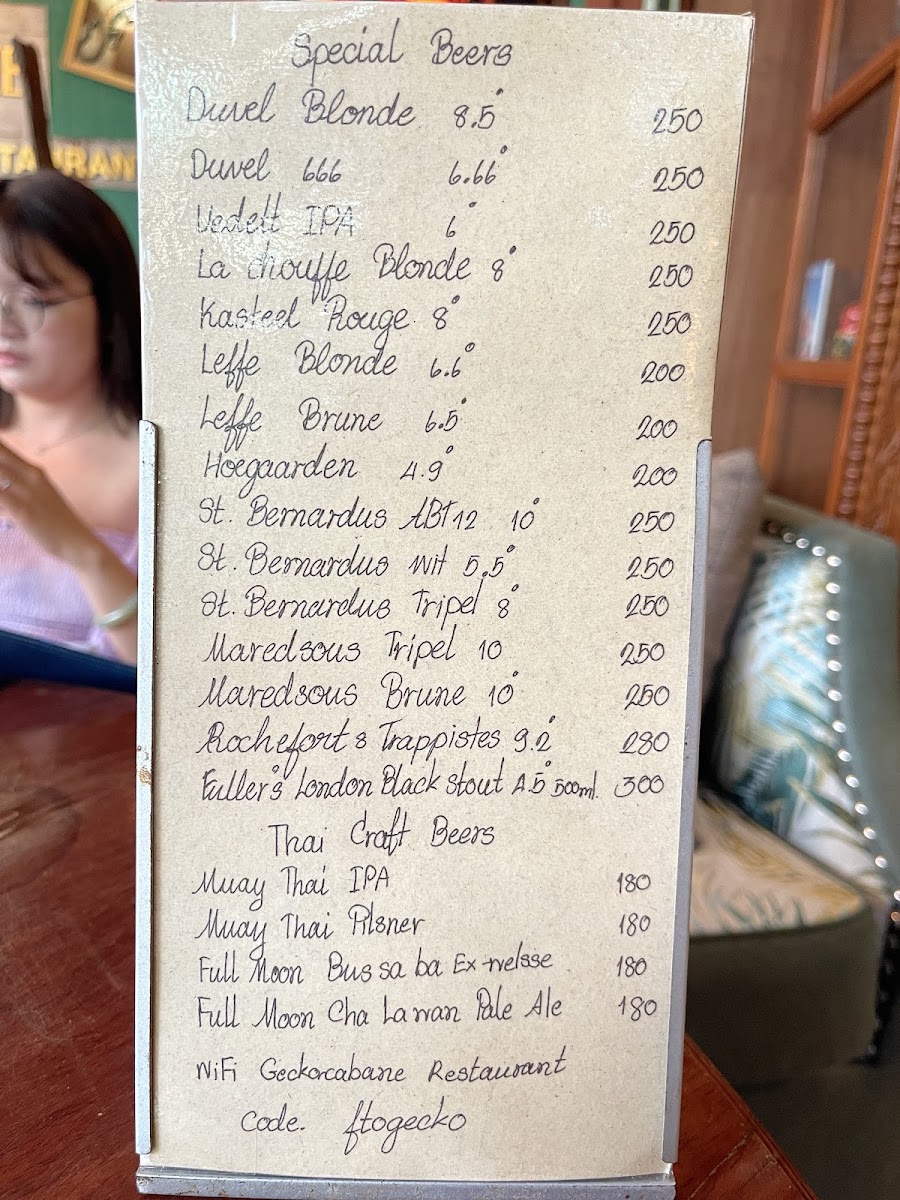 TAURAN
Special Beers
Duvel Blonde 8.5° 250
Duvel 666 6.66° 250
Vedett IPA 6° 250
La chouffe Blonde 8° 250
Kasteel Rouge 8° 250
Leffe Blonde 6.6° 200
Leffe Brune 6.5° 200
Hoegaarden 4.9° 200
St. Bernardus ABT 12 10° 250
St. Bernardus Wit 5.5° 250
St. Bernardus Tripel 8° 250
Maredsous Tripel 10 250
Maredsous Brune 10° 250
Rochefort 8 Trappistes 9.2° 280
Fuller's London Black Stout 4.5° 500ml. 300
Thai Craft Beers
Muay Thai IPA 180
Muay Thai Pilsner 180
Full Moon Bus sa ba 180
Full Moon Cha La wan Pale Ale 180
WiFi Geckorcabane Restaurant
Code. ftogecko